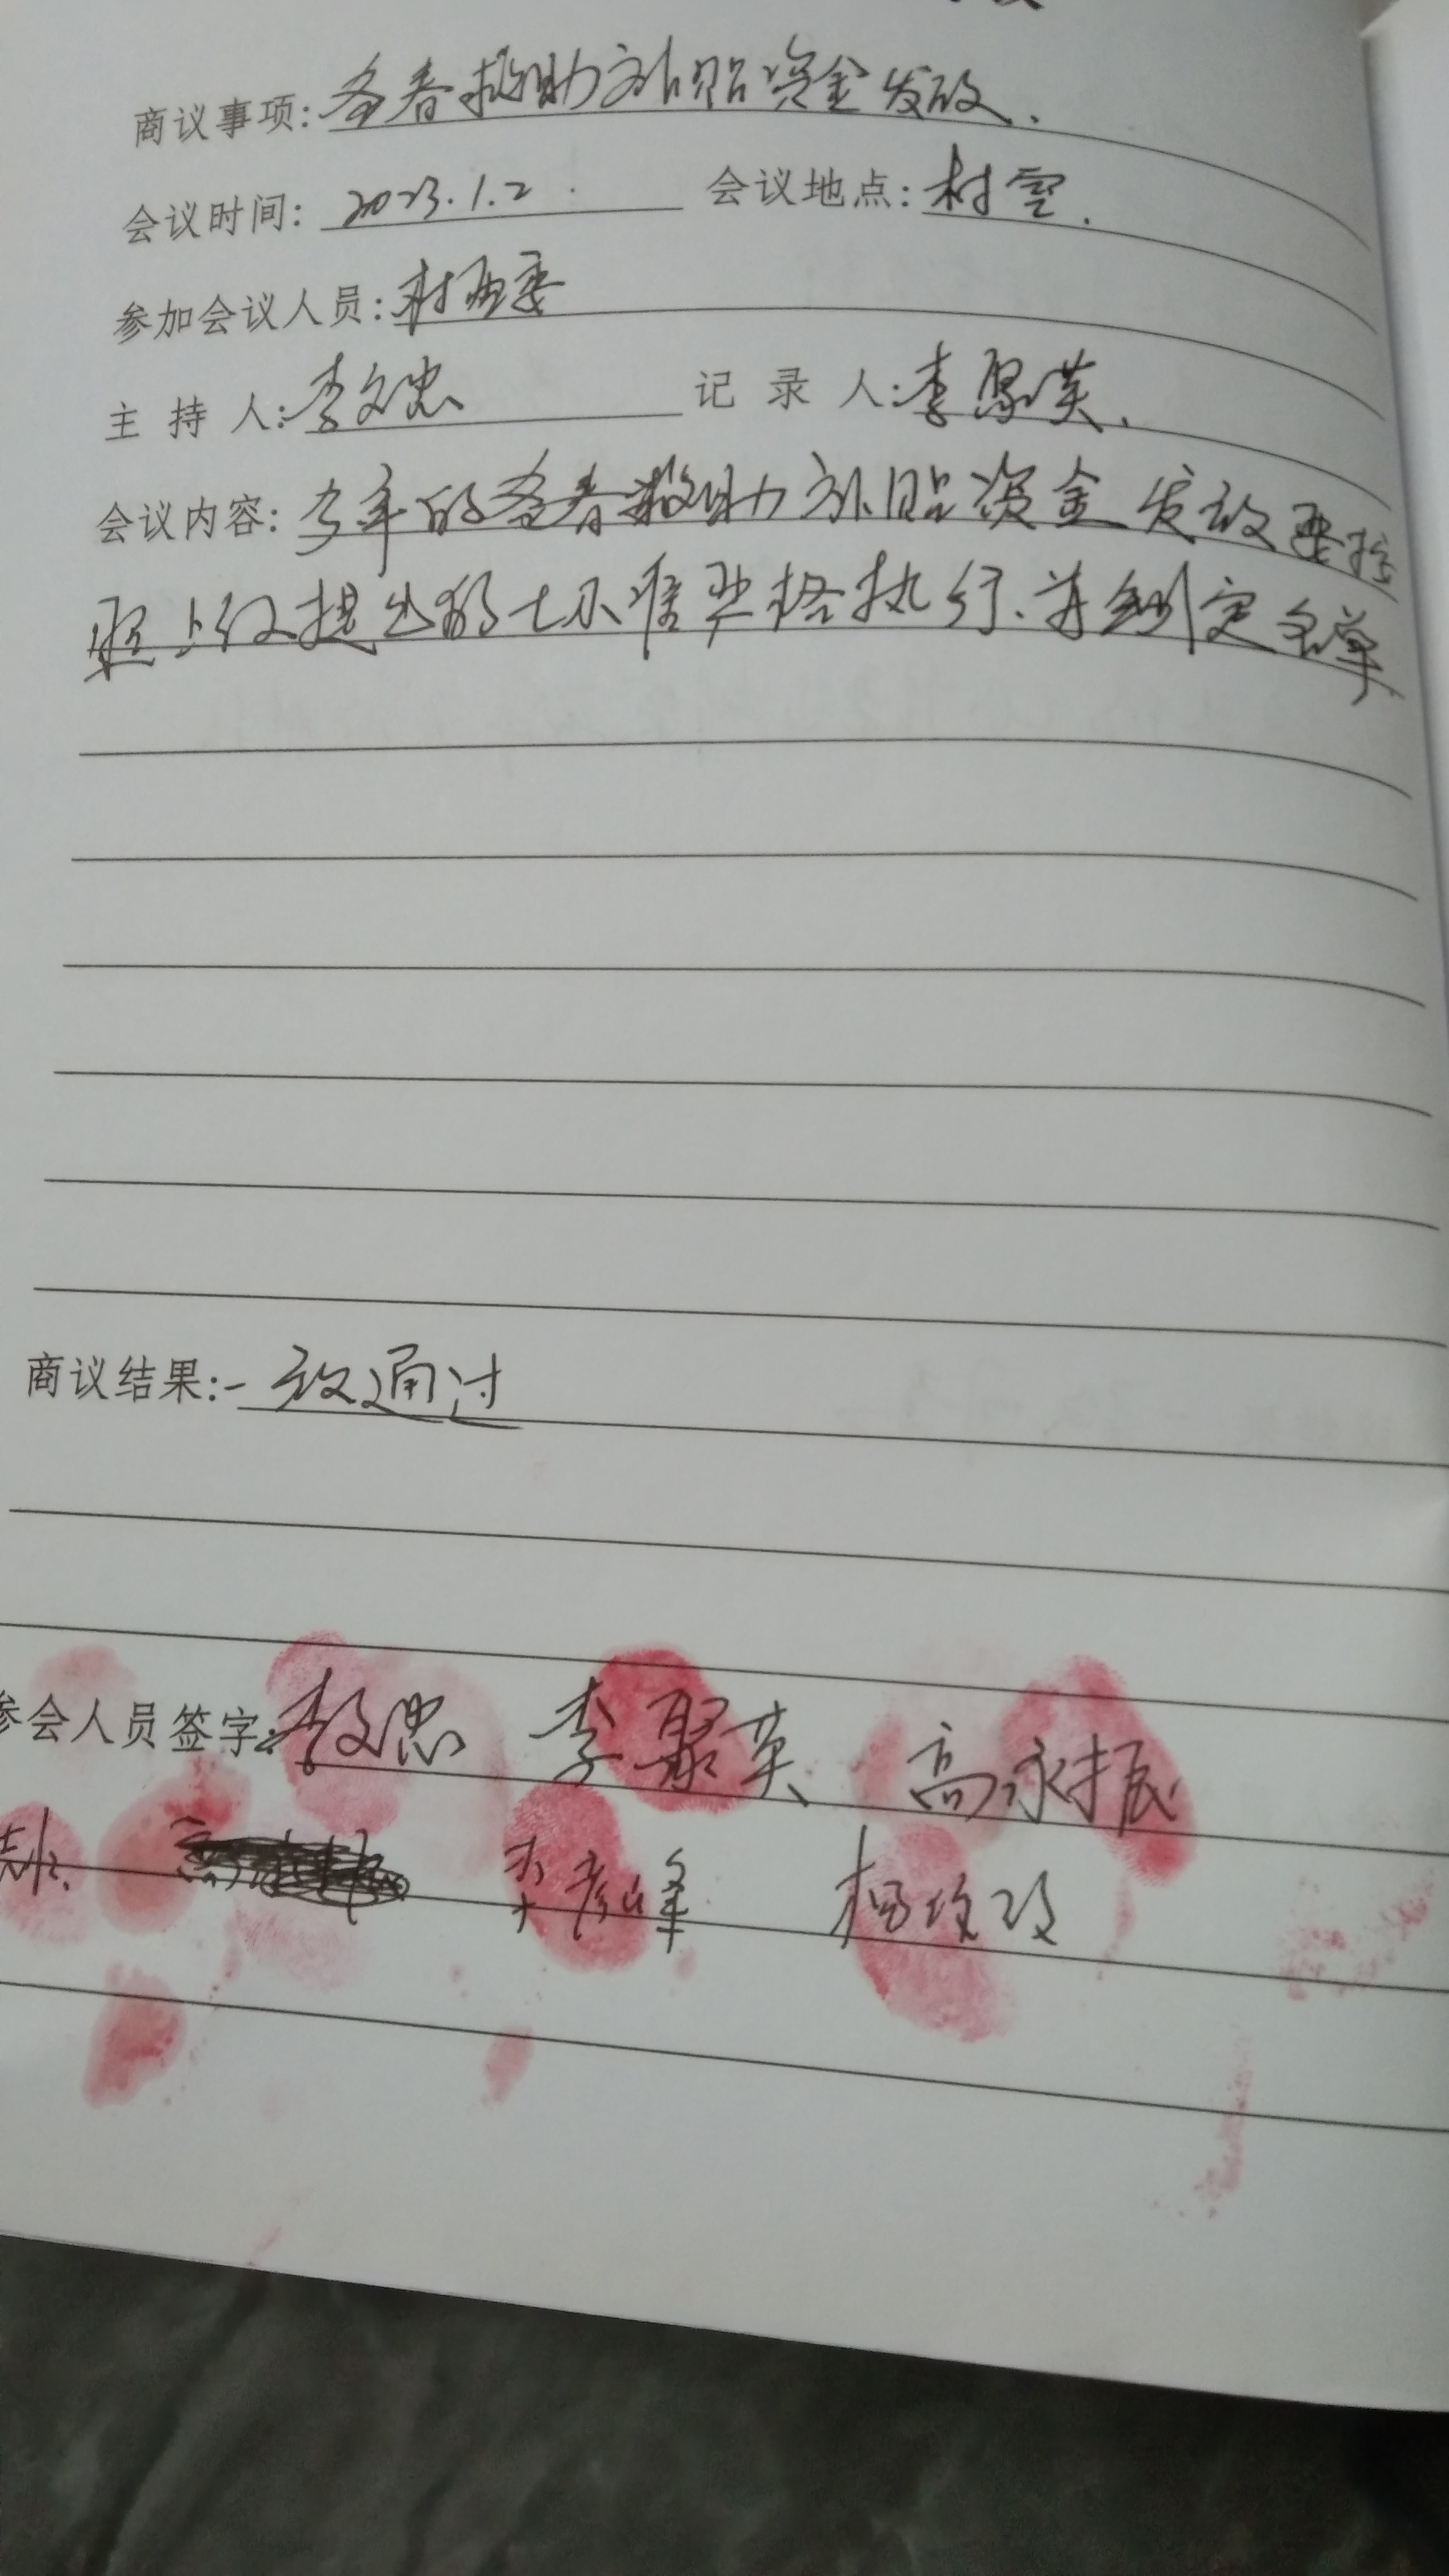 商议事项: 冬春救助补贴资金发放.
会议时间: 2023.1.2 会议地点: 村室.
参加会议人员: 村两委
主 持 人: 李文忠 记 录 人: 李聚英.
会议内容: 今年的冬春救助补贴资金发放要按
照上级提出的 标准严格执行.并制定名单
商议结果: 一致通过
参会人员签字: 李文忠 李聚英 高永振
彦峰 杨